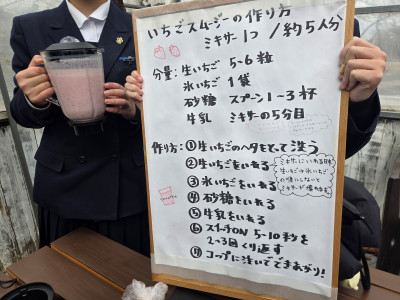 いちごスムージーの作り方
ミキサー1つ/約5人分
分量:生いちご 5~6粒
氷いちご 1袋
砂糖 スプーン1~3杯
牛乳 ミキサーの5分目
作り方:①生いちごのヘタをとって洗う
②生いちごをいれる
③氷いちごをいれる
④砂糖をいれる
⑤牛乳をいれる
⑥スイッチON 5-10秒を
2~3回くり返す
⑦コップに注いでできあがり!
ミキサーにいれる時
生いちご→氷いちご
の順にしないと
ミキサーが壊れます